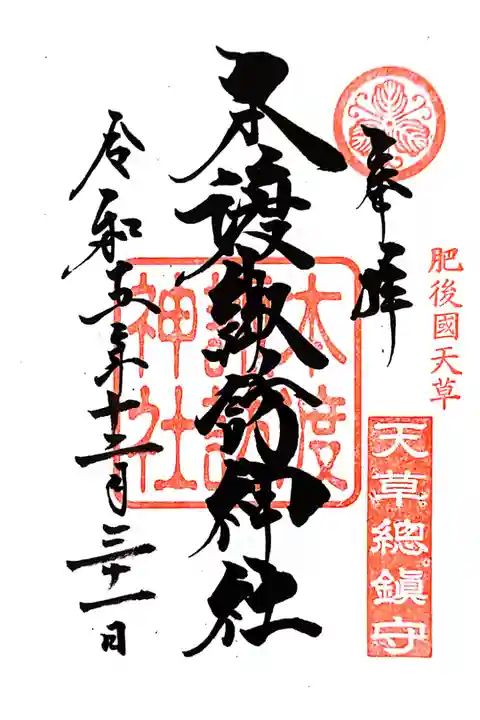 奉拝
肥後國天草
天草總鎮守
本渡諏訪神社
本渡
諏訪
神社
令和五年十二月三十一日